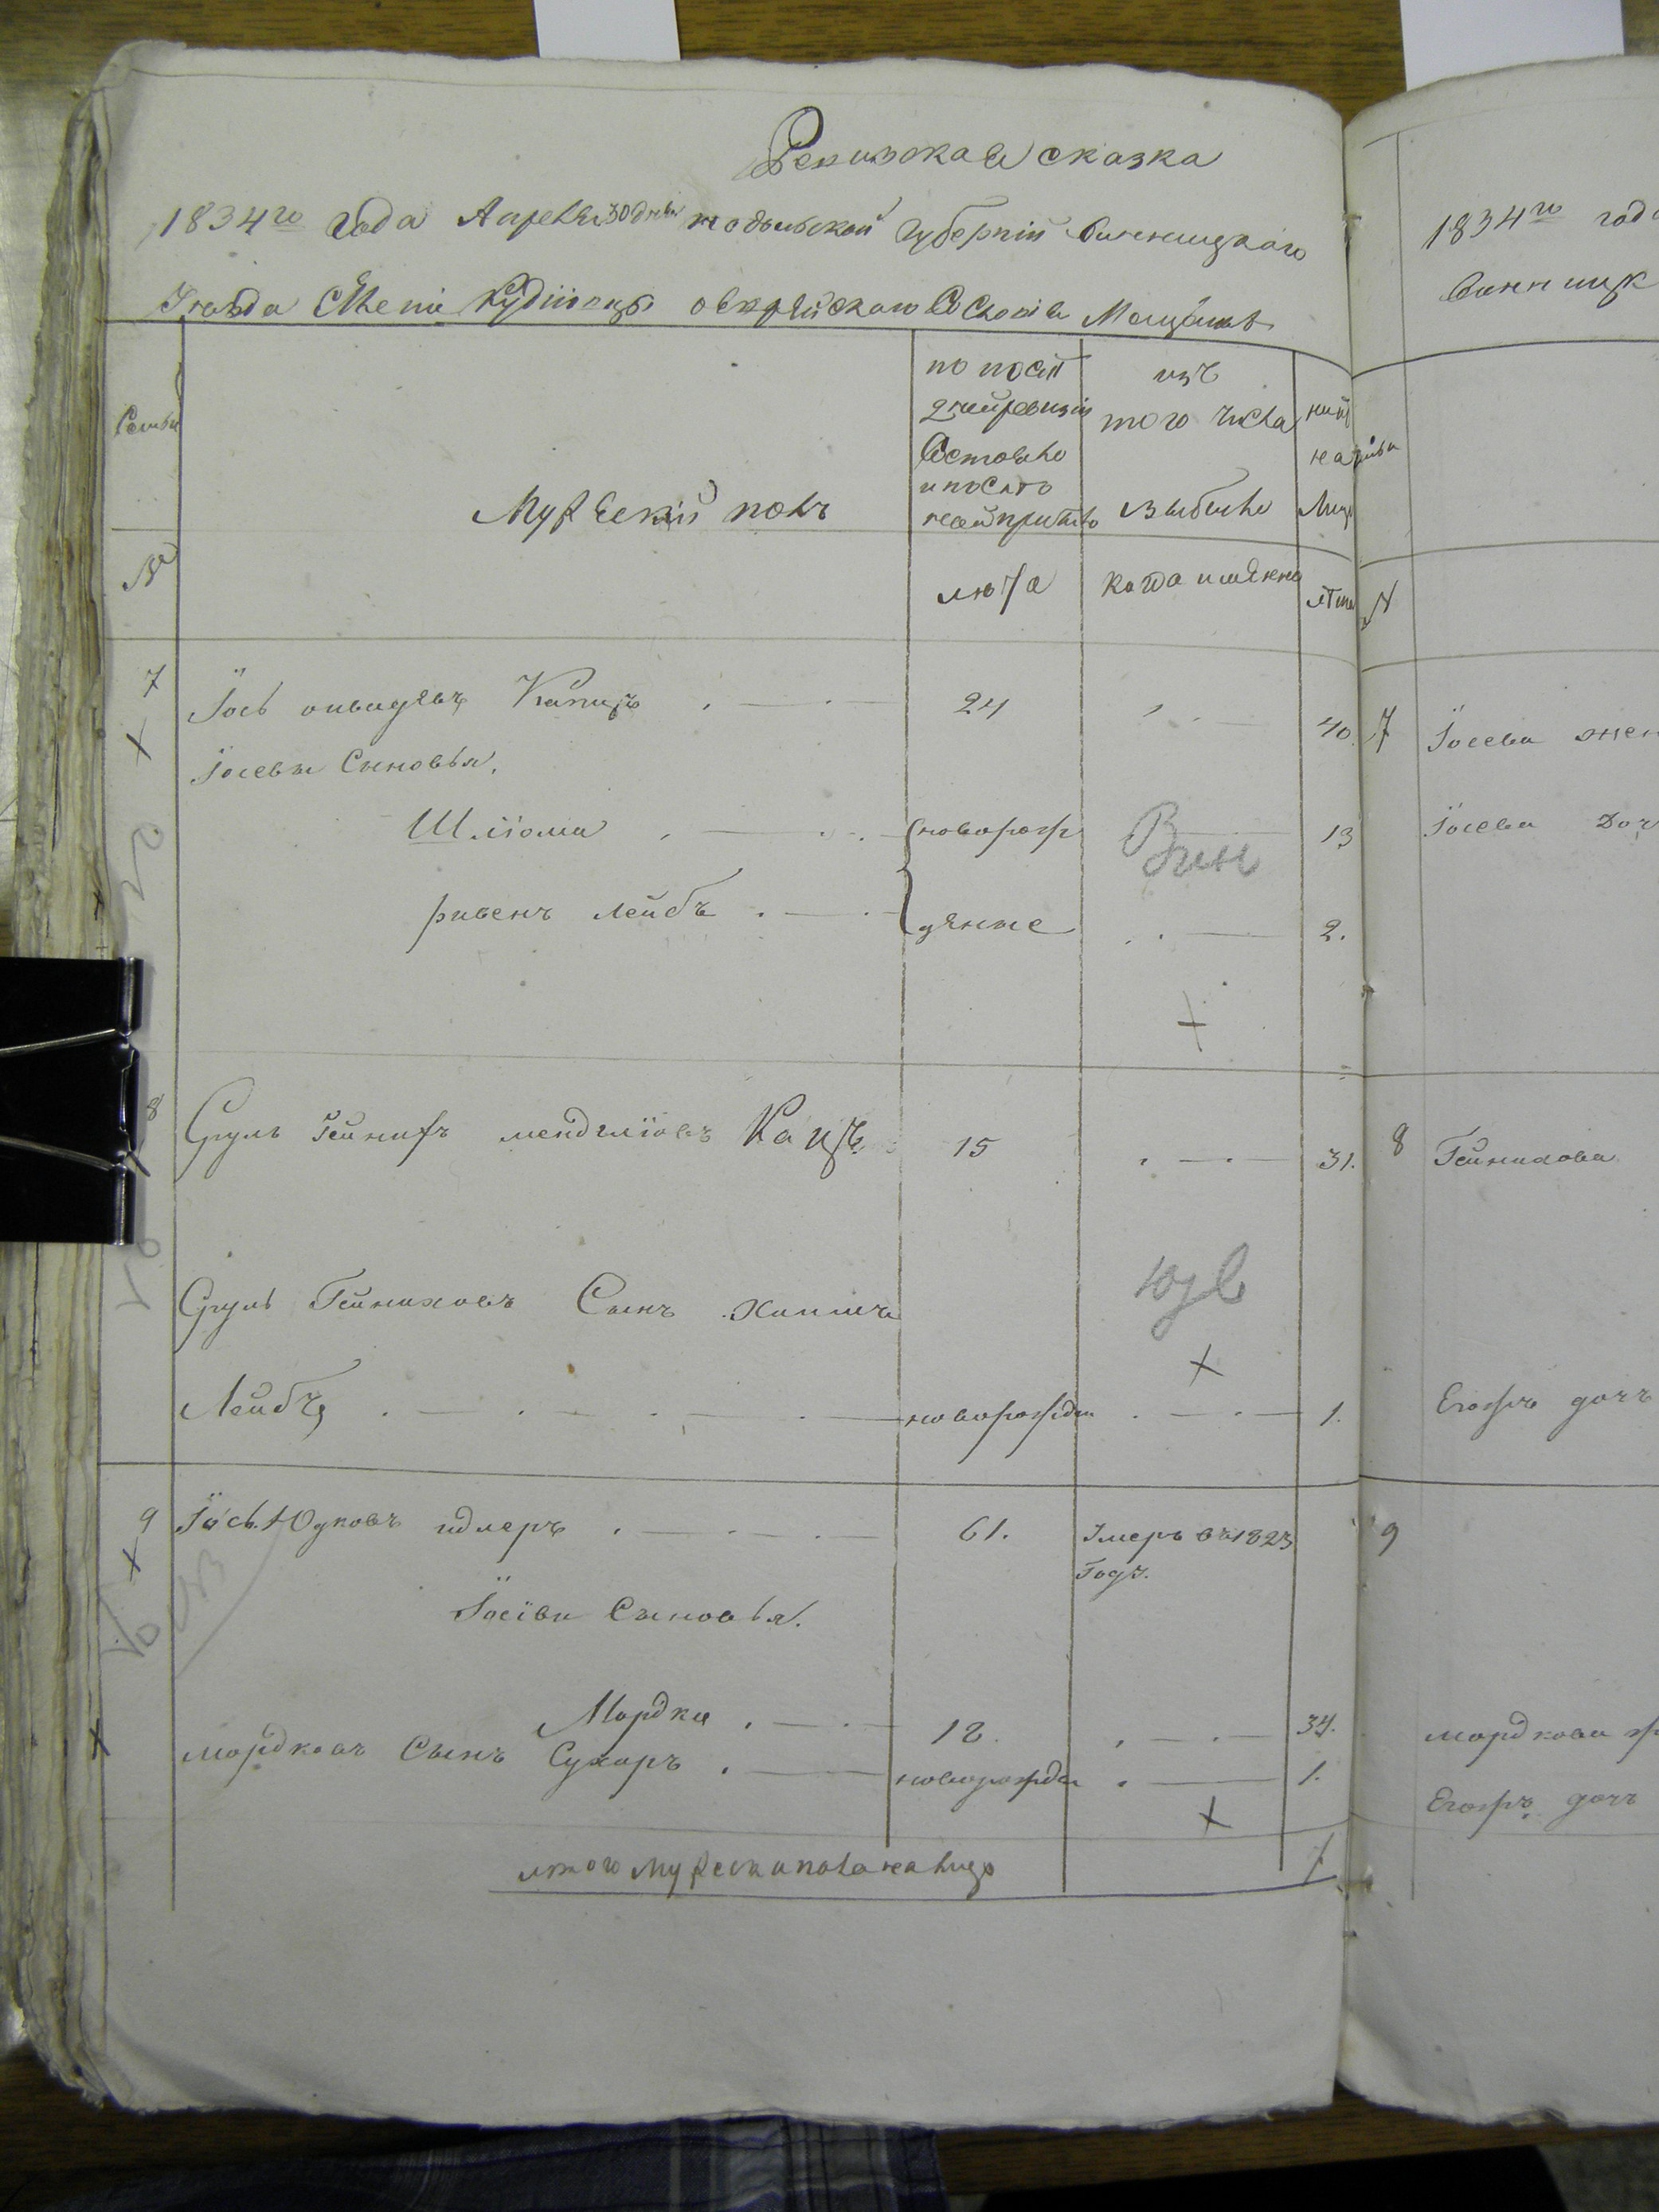 Ревизская сказка
1834го года Апреля 30 дня Подольской Губернiи Винницкаго
Уезда Местечка Кудiiовцы еврейскаго Сословiя Мещанъ
Семьи
Мужескiй полъ
по послѣ
дней ревизiи
Состояло
и после
ней прибыло
изъ
того числа
выбыло
ныне
на лицо
№
лета
Когда именно
лета
7
Iось Капицъ
24
40
Iосевы Сыновья.
Шлiома
новорож
13
Вин
ривенъ Лейбъ
денные
2.
8
Сруль Гейнихъ менделiовъ Кацъ
15
31.
Сруль Гейниховъ Сынъ Хаимъ
Лейбъ
новорожден
1.
9
Iось Юдковъ идлеръ
61.
Умеръ въ 1823
Годъ.
Iосiвы Сыновья.
Мордко
18.
34.
мордковъ Сынъ Сухаръ
новорожден
1.
итого мужеска пола на лицо
7
1834го года
Винницк
№
7
Iосева жен
Iосева доч
8
Гейнихова
Егожъ дочь
9
мордкова ж
Егожъ дочь